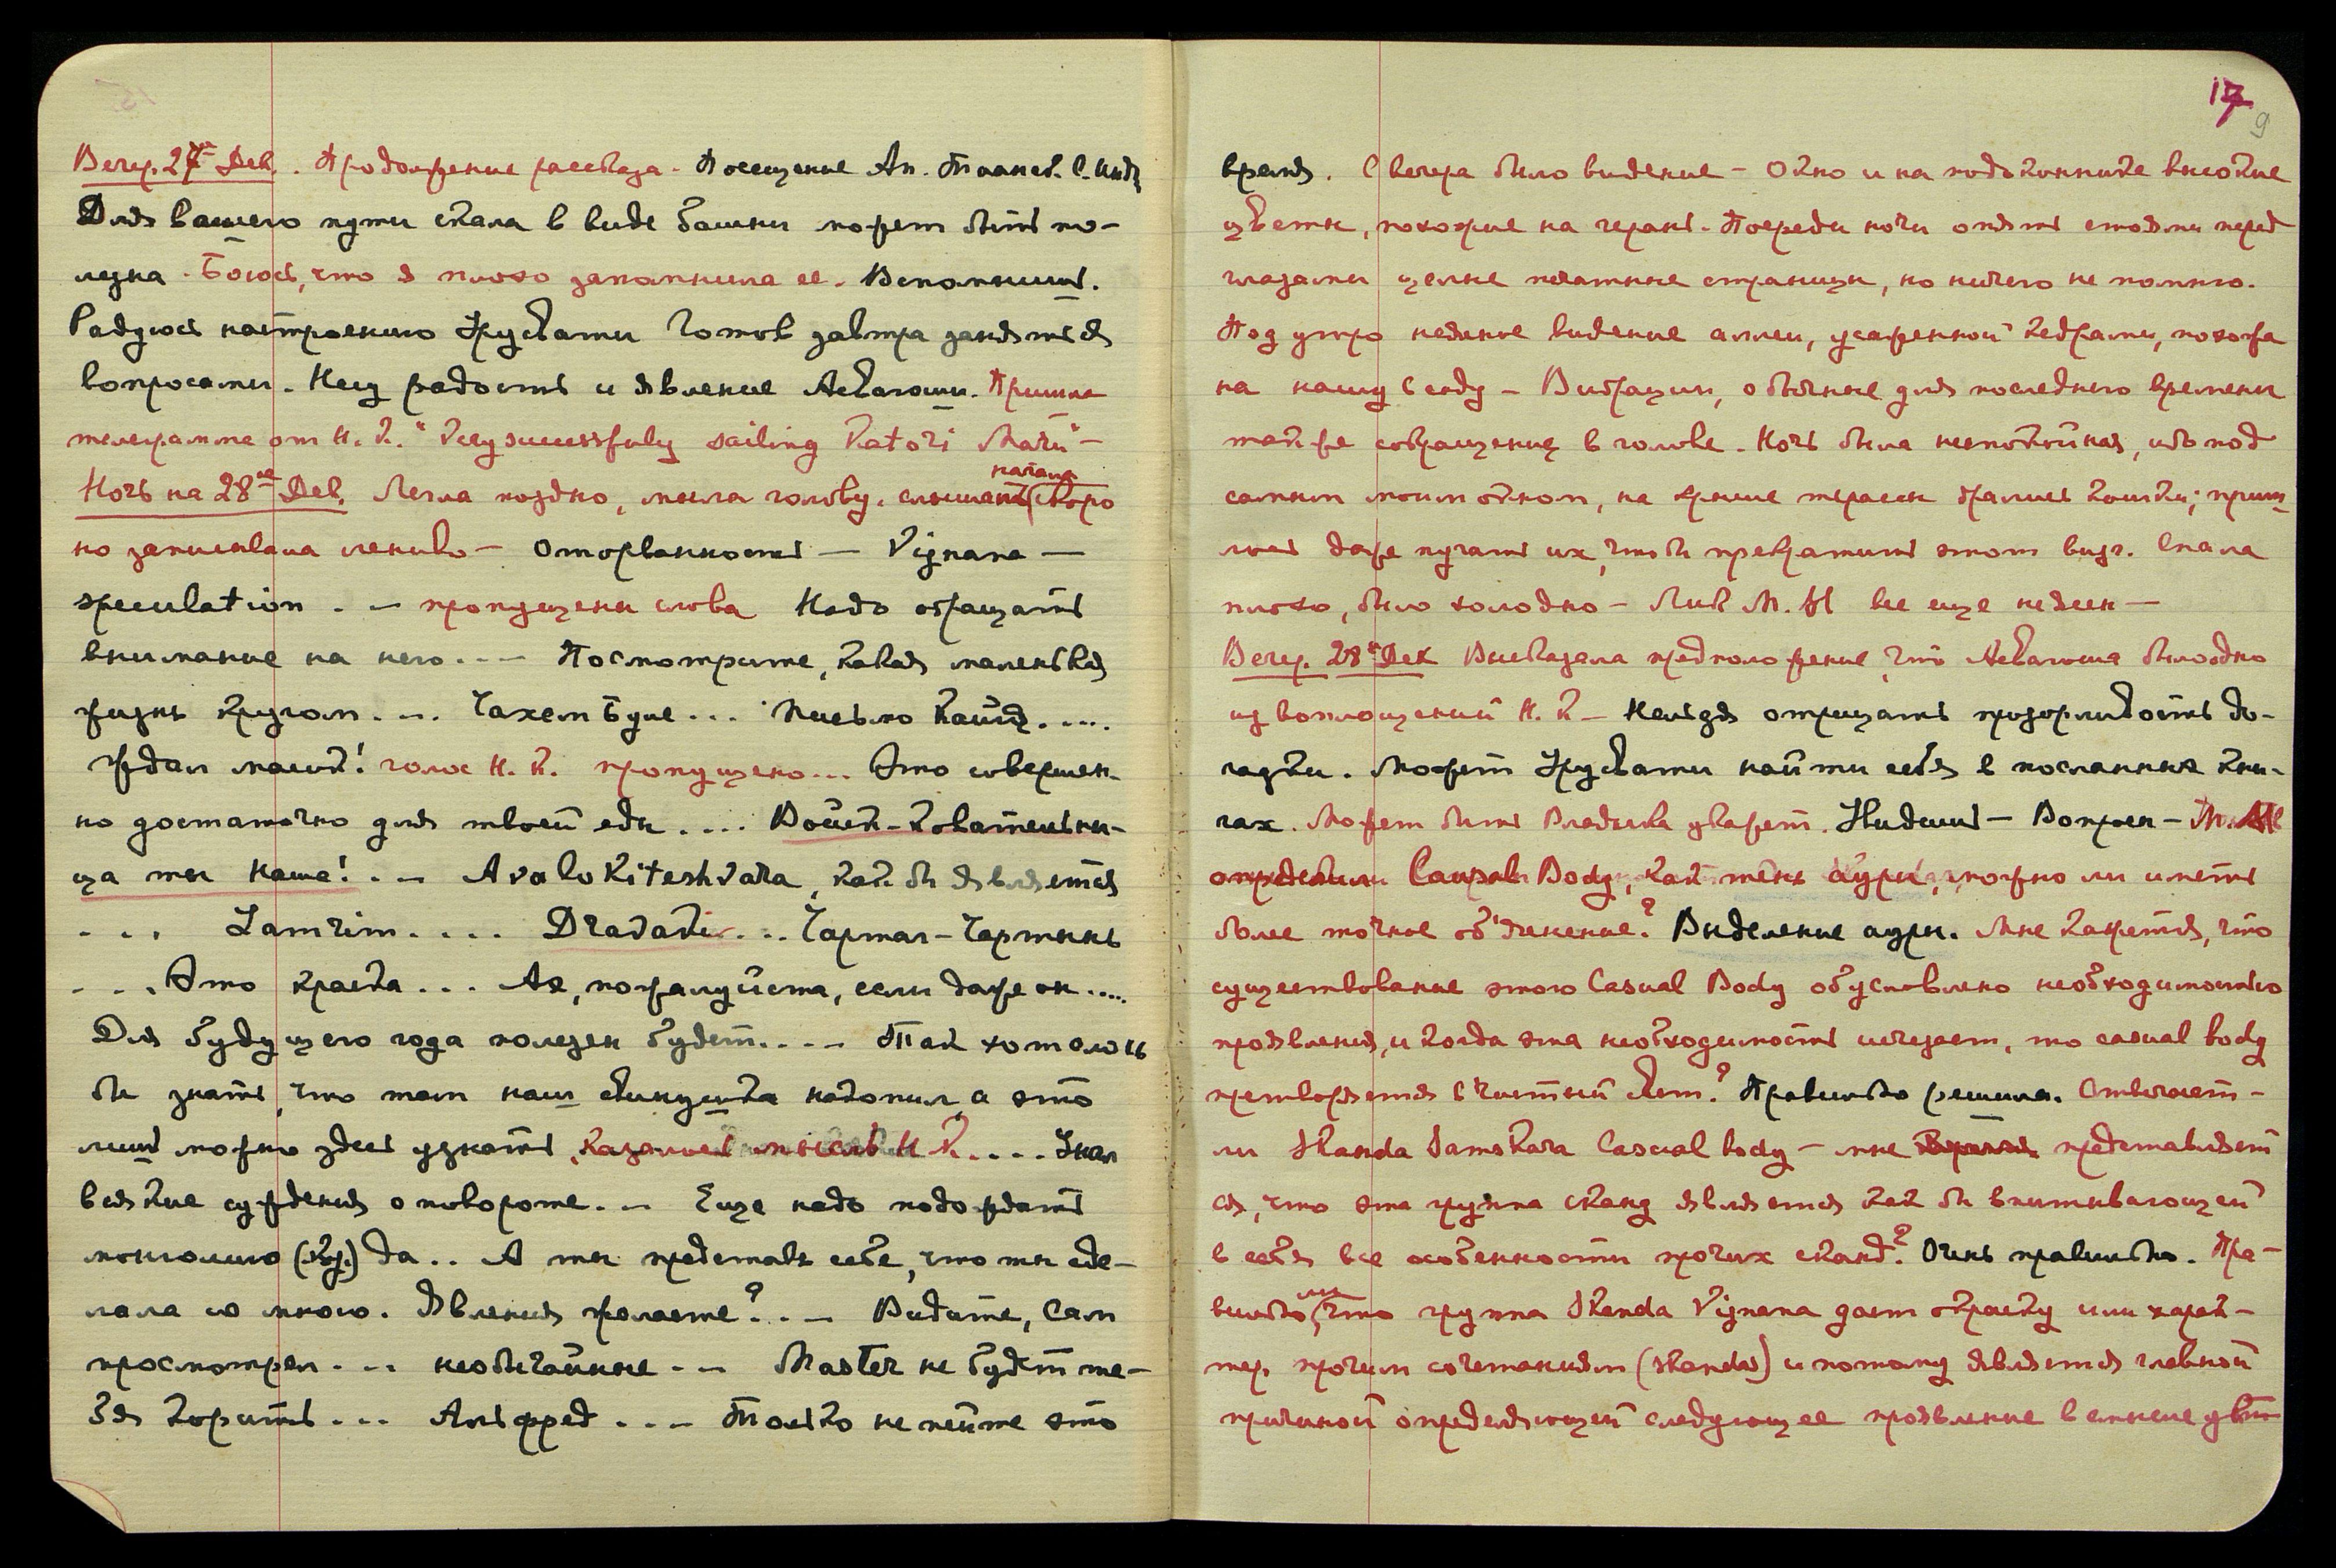 17
9
Вечер. 27ое Дек. Продолжение рассказа. Посещение Ап. Тианск. С. Инд.
Для вашего пути скала в виде башни может быть по-
лезна. Боюсь, что я плохо запомнила ее. Вспомнишь.
Радуюсь настроению Урусвати Готов завтра заняться
вопросами. Несу радость и явление Асвагоши. Пришла
телеграмма от Н. К. "successfuly sailing Katori Maru" —
Ночь на 28ое Дек. Легла поздно, мыла голову. слышать начала скоро
но записывала лениво — Оторванность — Vijnana —
speculation . — пропущены слова Надо обращать
внимание на него... — Посмотрите, какая маленькая
жизнь кругом . . . Чахем Буле . . . Письмо Кайя . . . .
Ждал малый! голос Н. К. пропущено... Это совершен-
но достаточно для твоей еды . . . . Войск-ковательни-
ца ты Наша! . — Avalokiteshvara, как бы является
. . . Lamrim. . . . Dradati . . . Чортал-Чортынь
. . . Это краска . . . Ах, пожалуйста, если даже он . . . .
Для будущего года полезен будет. . . . — Так хотелось
бы знать, что там наш накопил, а это
лишь можно здесь узнать, казалось мысль Н. К. . . . Знал
всякие суждения о повороте. . — Еще надо подождать
монголию (ску.) да . . А ты представь себе, что ты сде-
лала со мною. Явления желаете? . . — Видите, Сам
просмотрел . . . необычайные . — Master не будет те-
бя корить . . . Альфред . . . — Только не пейте это
время. С вечера было видение — Окно и на подоконнике высокие
цветы, похожие на герань. Посреди ночи опять стояли перед
глазами целые печатные страницы, но ничего не помню.
Под утро неясное видение аллеи, усаженной кедрами, похожа
на нашу в саду — Вибрации, обычные для последнего времени
также сокращения в голове. Ночь была неспокойная, ибо под
самым моим окном, на крыше террасы дрались кошки; приш
лось даже пугать их, чтобы прекратить этот визг. Спала
плохо, было холодно — Лик М. М все еще неясен —
Вечер. 28ое Дек Высказала предположение, что Асвагоша было одно
из воплощений Н. К — Нельзя отрицать прозорливость до-
гадки. Может Урусвати найти себя в посланных кни-
гах. Может быть Владыка укажет. Увидишь — Вопрос — М. М
определил Causal Body, как тень ауры, можно ли иметь
более точное об'яснение? Выделение ауры. Мне кажется, что
существование этого Casual Body обусловлено необходимостью
проявления, и когда эта необходимость исчезает, то casual body
претворяется в чистый Свет? Правильно решила. Отвечает —
ли Skanda Samskara Casual body — мне представляет
ся, что эта группа сканд является как бы впитывающей
в себя все особенности прочих сканд? Очень правильно. Пра-
вильно ли, что группа Skanda Vijnana дает окраску или харак-
тер прочим сочетаниям (skandas) и потому является главной
причиной определяющей следующее проявление в смысле